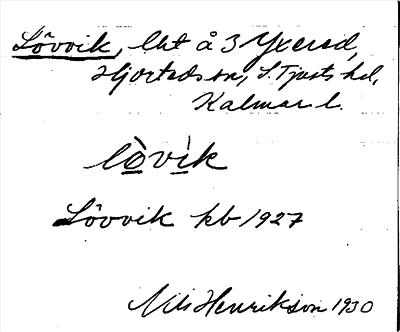 Lôvvik, lht å 3 Yxered,
Hjorteds sn, S. Tjusts hd,
Kalmar l.
lòvík
Lôvvik kb 1927
Nils Henrikson 1930